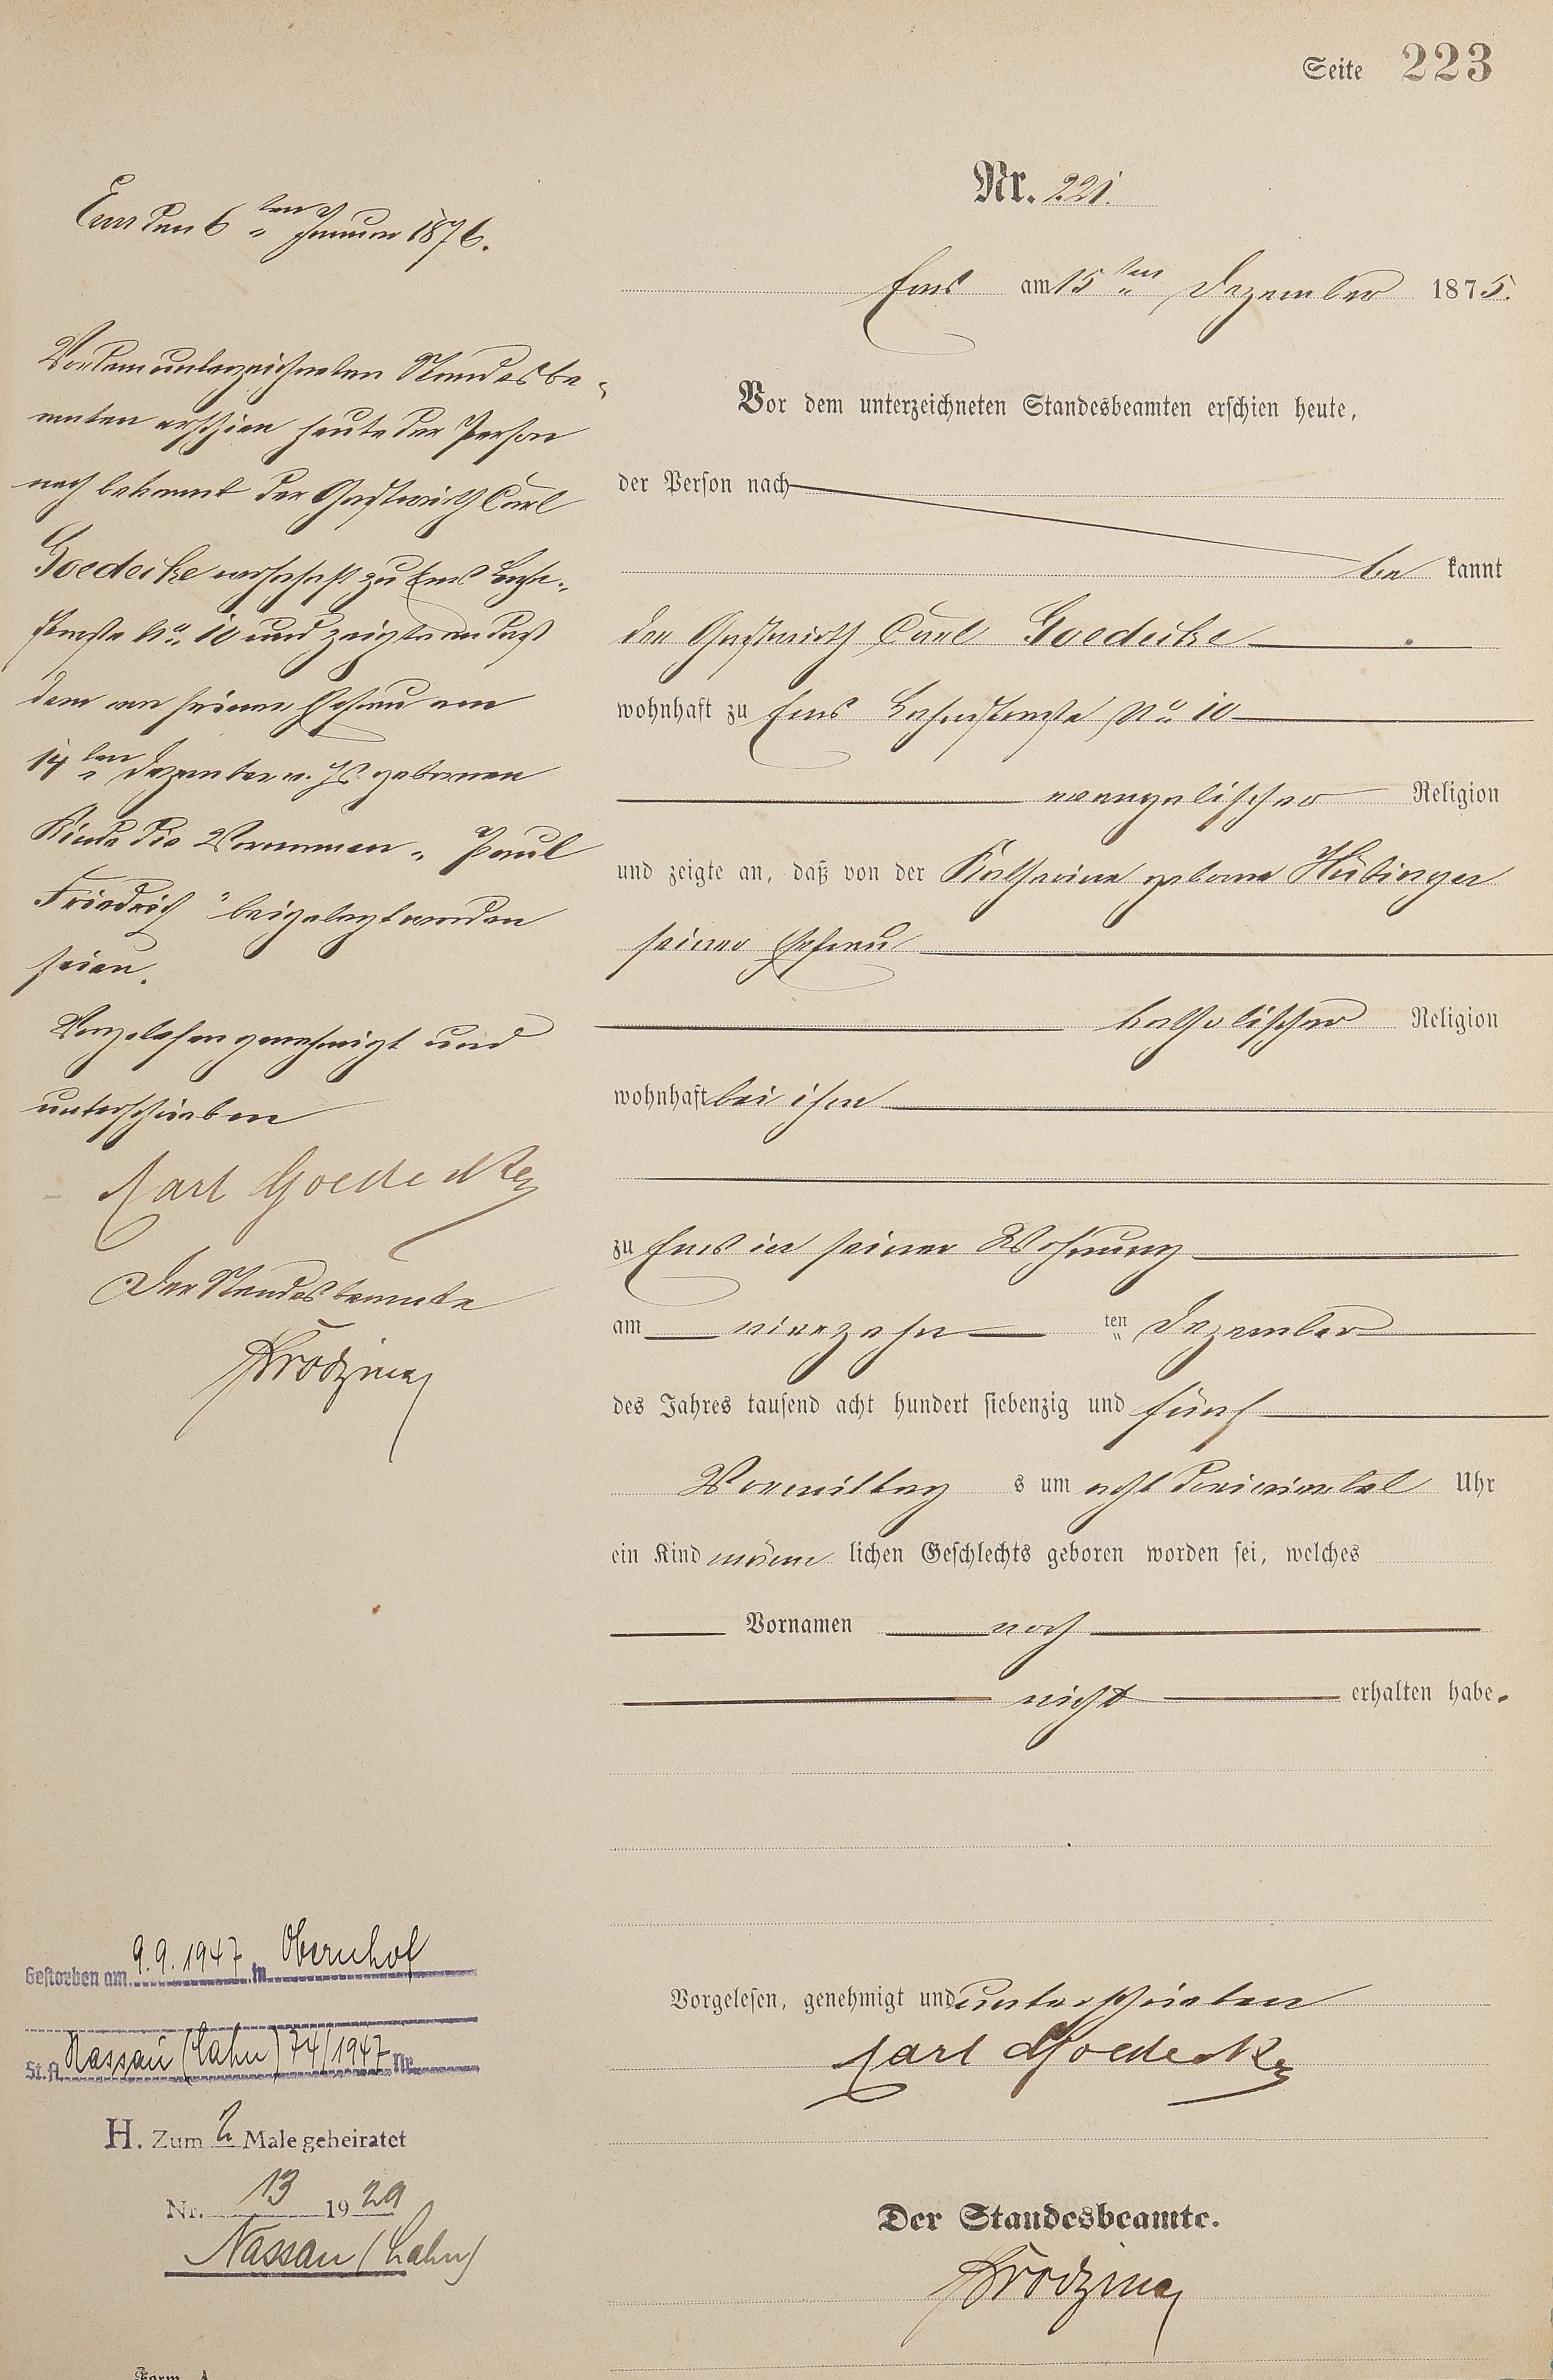 Seite 223
Nr. 221.
Ems am 15ten Dezember 1875.
Vor dem unterzeichneten Standesbeamten erschien heute,
der Person nach
be kannt
der Gastwirth Carl Goedecke
wohnhaft zu Ems Lahnstraße No 10
evangelischer Religion
und zeigte an, daß von der Katharina geborne Hübinger
seiner Ehefrau
katholischer Religion
wohnhaft bei ihm
zu Ems in seiner Wohnung
am vierzehn ten Dezember
des Jahres tausend acht hundert siebenzig und fünf
Vormittag s um acht dreiviertel Uhr
ein Kind männ lichen Geschlechts geboren worden sei, welches
Vornamen noch
nicht erhalten habe.
Vorgelesen, genehmigt und unterschrieben
Carl Goedecke
Der Standesbeamte.
Ems den 6ten Januar 1876.
Vor dem unterzeichneten Standesbe-
amten erschien heute der Person
nach bekannt der Gastwirth Carl
Goedecke wohnhaft zu Ems Lahn-
straße No 10 und zeigte an daß
dem von seiner Ehefrau am
14ten Dezember v. Js. gebornen
Kinde die Vornamen „Paul
Friedrich" beigelegt worden
seien.
Vorgelesen genehmigt und
unterschrieben
Carl Goedecke
Der Standesbeamte
Gestorben am 9.9.1947 in Obernhof
St. A. Nassau (Lahn) 74/1947 Nr.
H. Zum 2. Male geheiratet
Nr. 13 1929
Nassau (Lahn)
Form. A